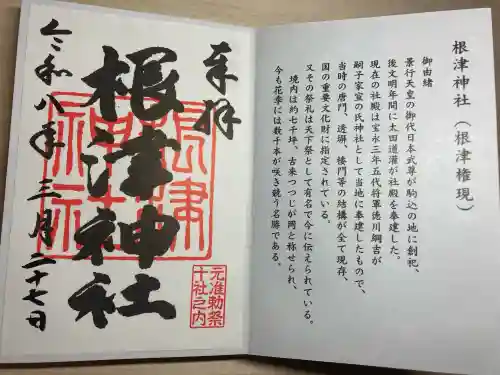 根津神社（根津権現）
御由緒
景行天皇の御代日本武尊が駒込の地に創祀、
後文明年間に太田道灌が社殿を奉建した。
現在の社殿は宝永三年五代将軍徳川綱吉が
嗣子家宣の氏神社として当地に奉建したもので、
当時の唐門、透塀、楼門等の結構が全て現存、
国の重要文化財に指定されている。
又その祭礼は天下祭として有名で今に伝えられている。
境内は約七千坪、古来つつじが岡と称せられ、
今も花季には数千本が咲き競う名勝である。
奉拝
根津神社
根津神社
元准勅祭
十社之内
令和八年三月二十七日